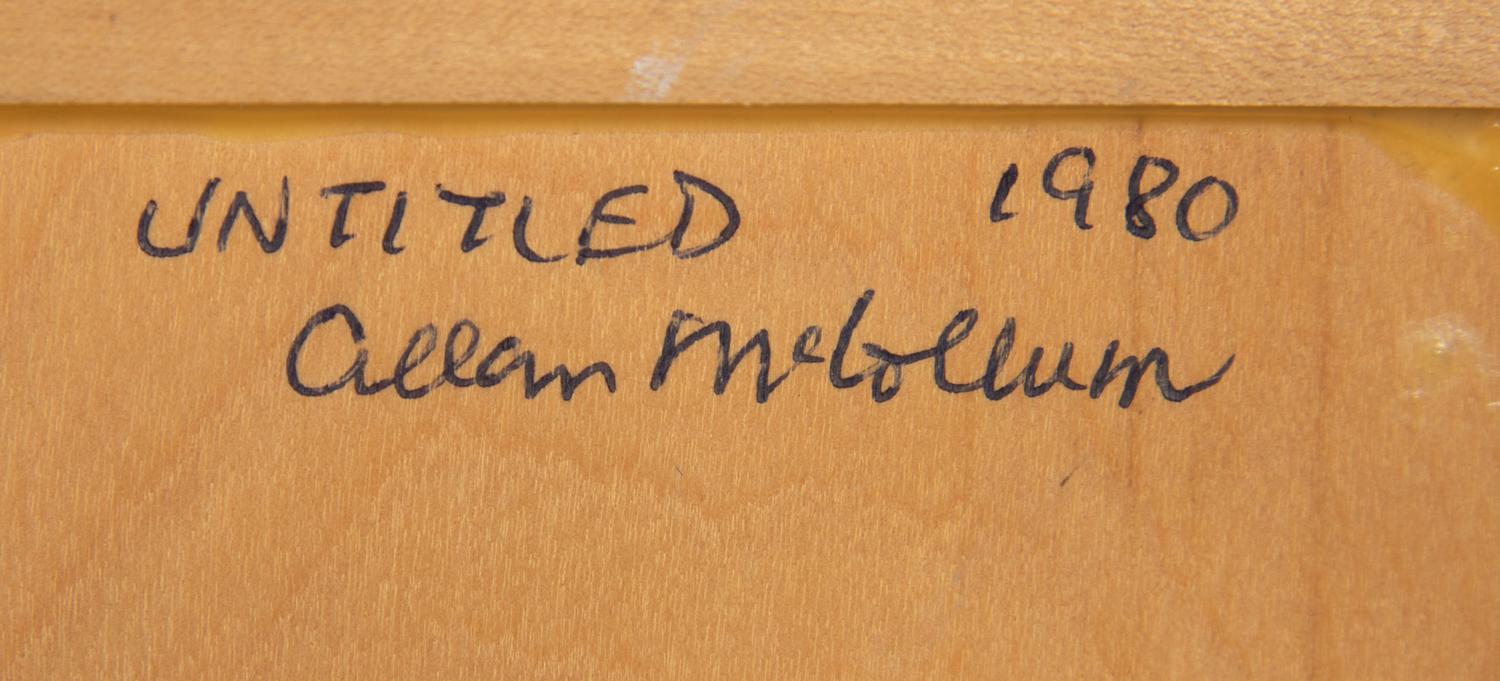 UNTITLED 1980
Allan McCollum